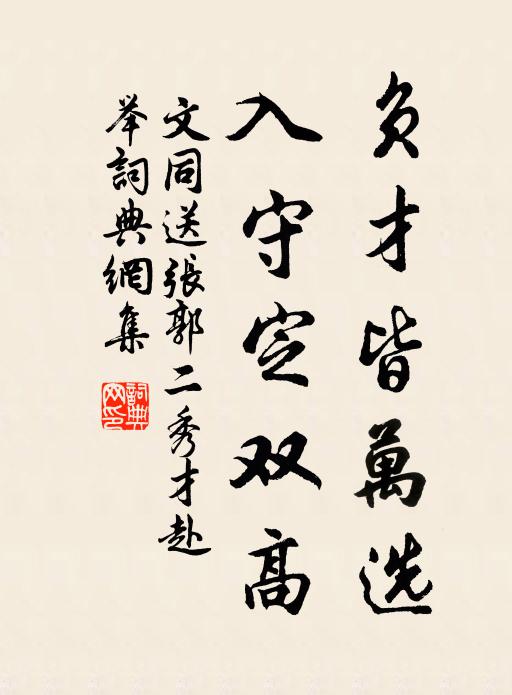 负才皆萬选
入守定双高
文同送張郭二秀才赴
举詞典網集
詞典
网印